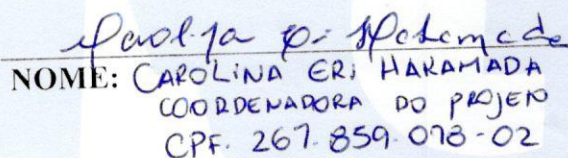 NOME: CAROLINA ERI HAKAMADA
COORDENADORA DO PROJETO
CPF. 267.859.078-02